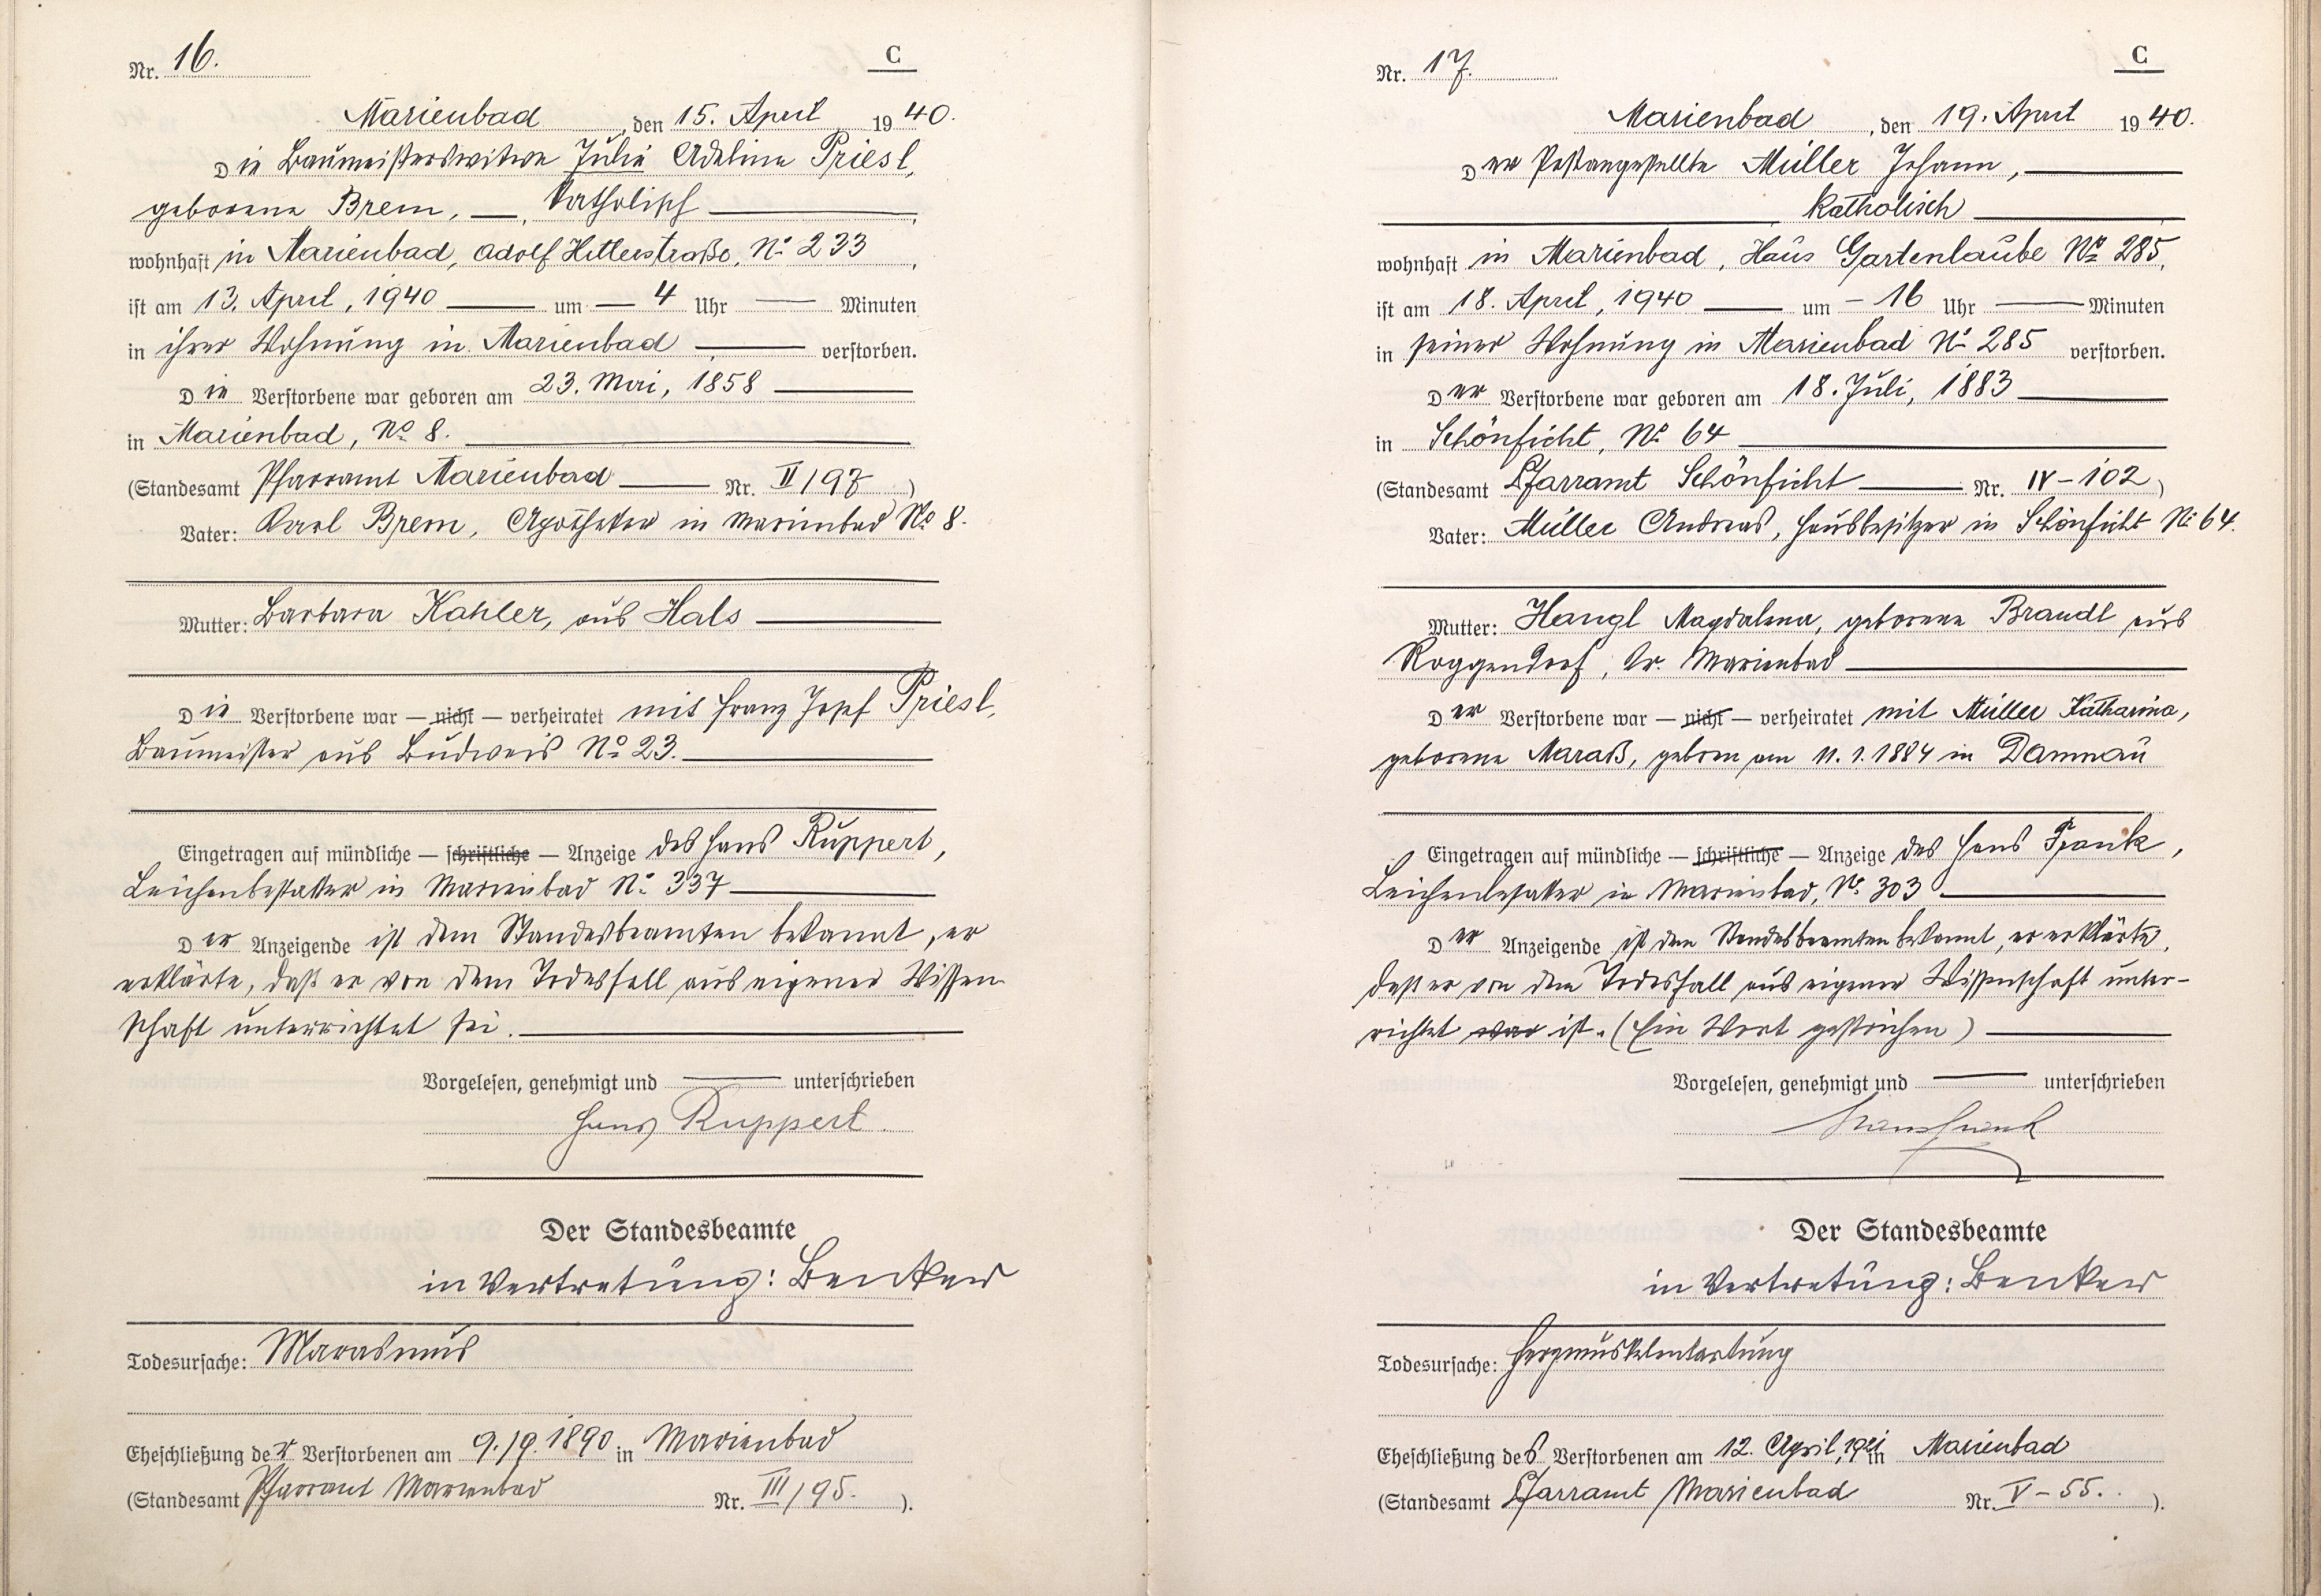 Nr. 16.
C
Marienbad, den 15. April 1940.
Die Baumeisterswitwe Julie Adeline Priesl,
geborene Brem, — , katholisch
wohnhaft in Marienbad, Adolf Hitlerstraße, No 233,
ist am 13. April, 1940 um — 4 Uhr — Minuten
in ihrer Wohnung in Marienbad — verstorben.
Die Verstorbene war geboren am 23. Mai, 1858
in Marienbad, No 8.
(Standesamt Pfarramt Marienbad — Nr. II/97)
Vater: Karl Brem, Apotheker in Marienbad No 8.
Mutter: Barbara Kahler, aus Hals
Die Verstorbene war — nicht — verheiratet mit Franz Josef Priesl,
Baumeister aus Budweis No 23.
Eingetragen auf mündliche — schriftliche — Anzeige des Hans Ruppert,
Leichenbestatter in Marienbad No 337
Der Anzeigende ist dem Standesbeamten bekannt, er
erklärte, daß er von dem Todesfall aus eigener Wissen
schaft unterrichtet sei.
Vorgelesen, genehmigt und — unterschrieben
Hans Ruppert.
Der Standesbeamte
in Vertretung: Benker
Todesursache: Marasmus
Eheschließung der Verstorbenen am 9./9. 1890 in Marienbad
(Standesamt Pfarramt Marienbad Nr. III/95. ).
Nr. 17.
C
Marienbad, den 19. April 1940.
Der Postangestellte Müller Johann,
katholisch
wohnhaft in Marienbad, Haus Gartenlaube No 285,
ist am 18. April, 1940 um — 16 Uhr — Minuten
in seiner Wohnung in Marienbad No 285 verstorben.
Der Verstorbene war geboren am 18. Juli, 1883
in Schönficht, No 64
(Standesamt Pfarramt Schönficht — Nr. IV-102)
Vater: Müller Andreas, Hausbesitzer in Schönficht No 64.
Mutter: Hangl Magdalena, geborene Brandl aus
Roggendorf, Kr. Marienbad
Der Verstorbene war — nicht — verheiratet mit Müller Katharina,
geborene Maraß, geboren am 11. 1. 1884 in Damnau
Eingetragen auf mündliche — schriftliche — Anzeige des Hans Frank,
Leichenbestatter in Marienbad, No 303
Der Anzeigende ist dem Standesbeamten bekannt, er erklärte,
daß er von dem Todesfall aus eigener Wissenschaft unter-
richtet war ist. (Ein Wort gestrichen)
Vorgelesen, genehmigt und — unterschrieben
Hans Frank
Der Standesbeamte
in Vertretung: Benker
Todesursache: Herzmuskelentartung
Eheschließung des Verstorbenen am 12. April, 1921 in Marienbad
(Standesamt Pfarramt Marienbad Nr. V-55. ).